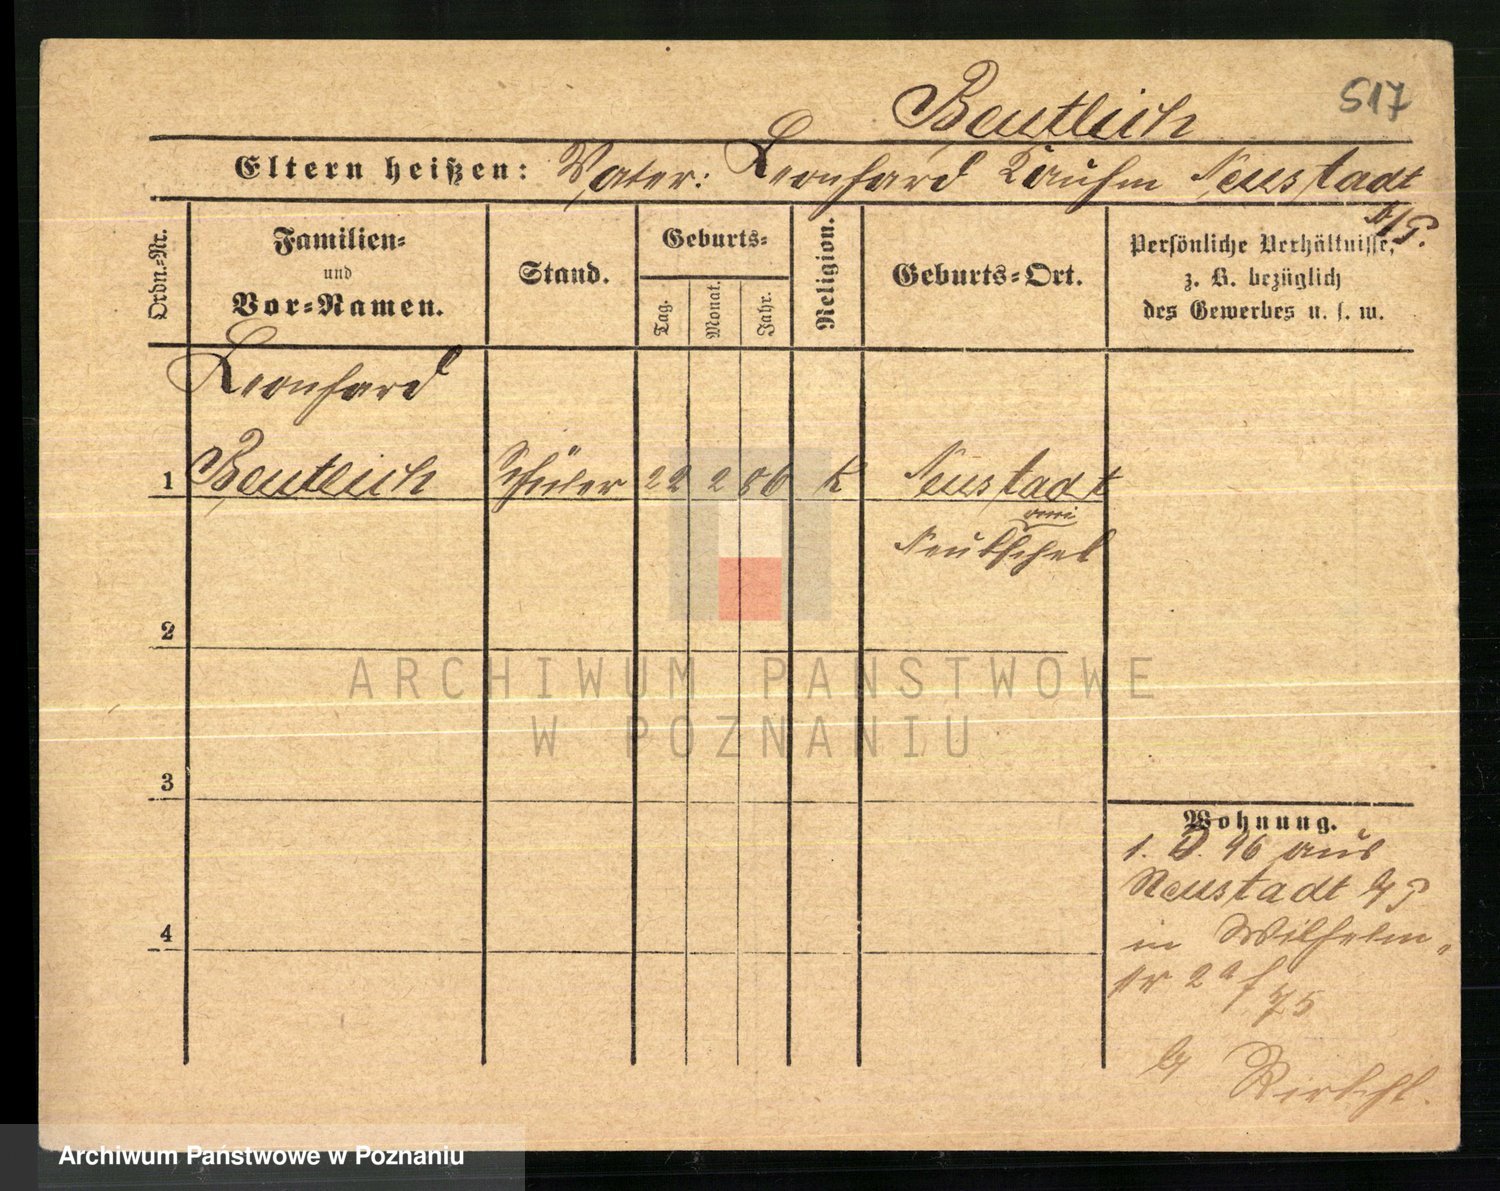 517
Beutlich
Eltern heißen: Vater: Leonhard Kaufm Neustadt
b/P.
Ordn.-Nr.
Familien-
und
Vor-Namen.
Stand.
Geburts-
Tag.
Monat.
Jahr.
Religion.
Geburts-Ort.
Persönliche Verhältnisse,
z. B. bezüglich
des Gewerbes u. s. w.
Leonhard
1 Beutlich Schüler 22 2 86 k Neustadt
2
3
Wohnung.
1. 96 aus
Neustadt b/P
in Wilhelm-
str 2
4
b/
ARCHIWUM PAŃSTWOWE
W POZNANIU
Archiwum Państwowe w Poznaniu